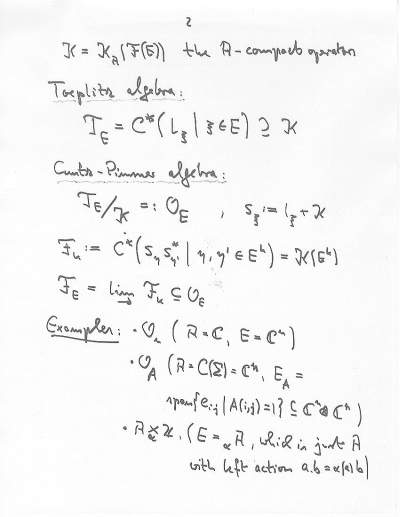 2
K = K_A(F(E)) the A-compact operators
Toeplitz algebra:
T_E = C*(L_ξ | ξ ∈ E) ⊇ K
Cuntz-Pimsner algebra:
T_E/K =: O_E , S_ξ := L_ξ + K
F_k := C*(S_η S_η'* | η, η' ∈ E^k) = K(E^k)
F_E = lim→ F_k ⊆ O_E
Examples: • O_n (A = C, E = C^n)
• O_A (A = C(Σ) = C^n, E_A =
span{e_ij | A(i,j) = 1} ⊆ C^n ⊗ C^n)
• A ⋊_α Z. (E = _αA, which is just A
with left action a.b = α(a)b)